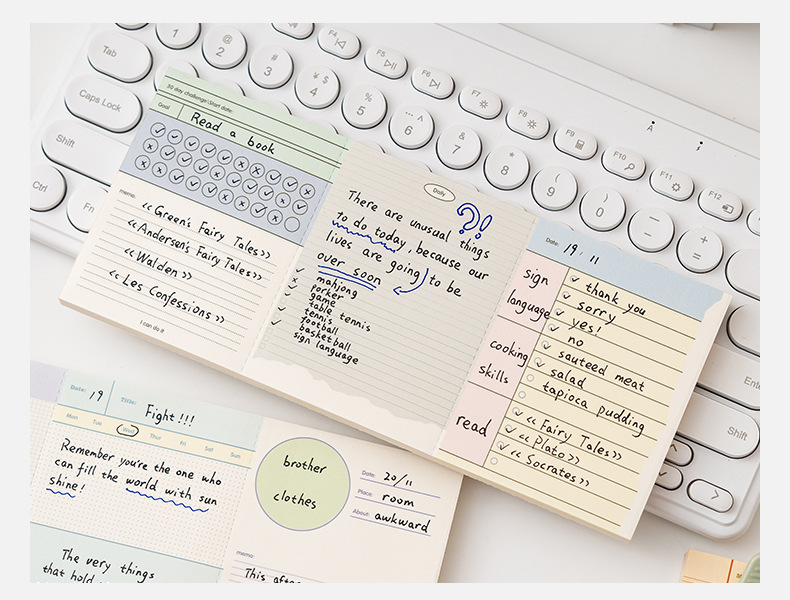 Tab
Caps Lock
Shift
Ctrl
Fn
1
@
2
#
3
¥ $
4
%
5
^
6
&
7
*
8
(
9
)
0
—
+
=
F4
F5
F6
F7
F8
F9
F10
F11
F12
A
Shift
30 day challenge\Start date:
Goal
Read a book
memo:
<< Green's Fairy Tales >>
<< Andersen's Fairy Tales >>
<< Walden >>
<< Les Confessions >>
I can do it
Daily
?!
There are unusual things
to do today, because our
lives are going to be
over soon
mahjong
porker
game
table tennis
tennis
football
basketball
sign language
Date: 19 . 11
sign
language
thank you
sorry
yes!
no
cooking
skills
sauteed meat
salad
tapioca pudding
read
<< Fairy Tales >>
<< Plato >>
<< Socrates >>
Date: 19
Title: Fight!!!
Mon Tue Wed Thur Fri Sat Sun
Remember you're the one who
can fill the world with sun
shine!
The very things
that hold
brother
clothes
Date: 20/11
Place: room
About: awkward
memo:
This afte